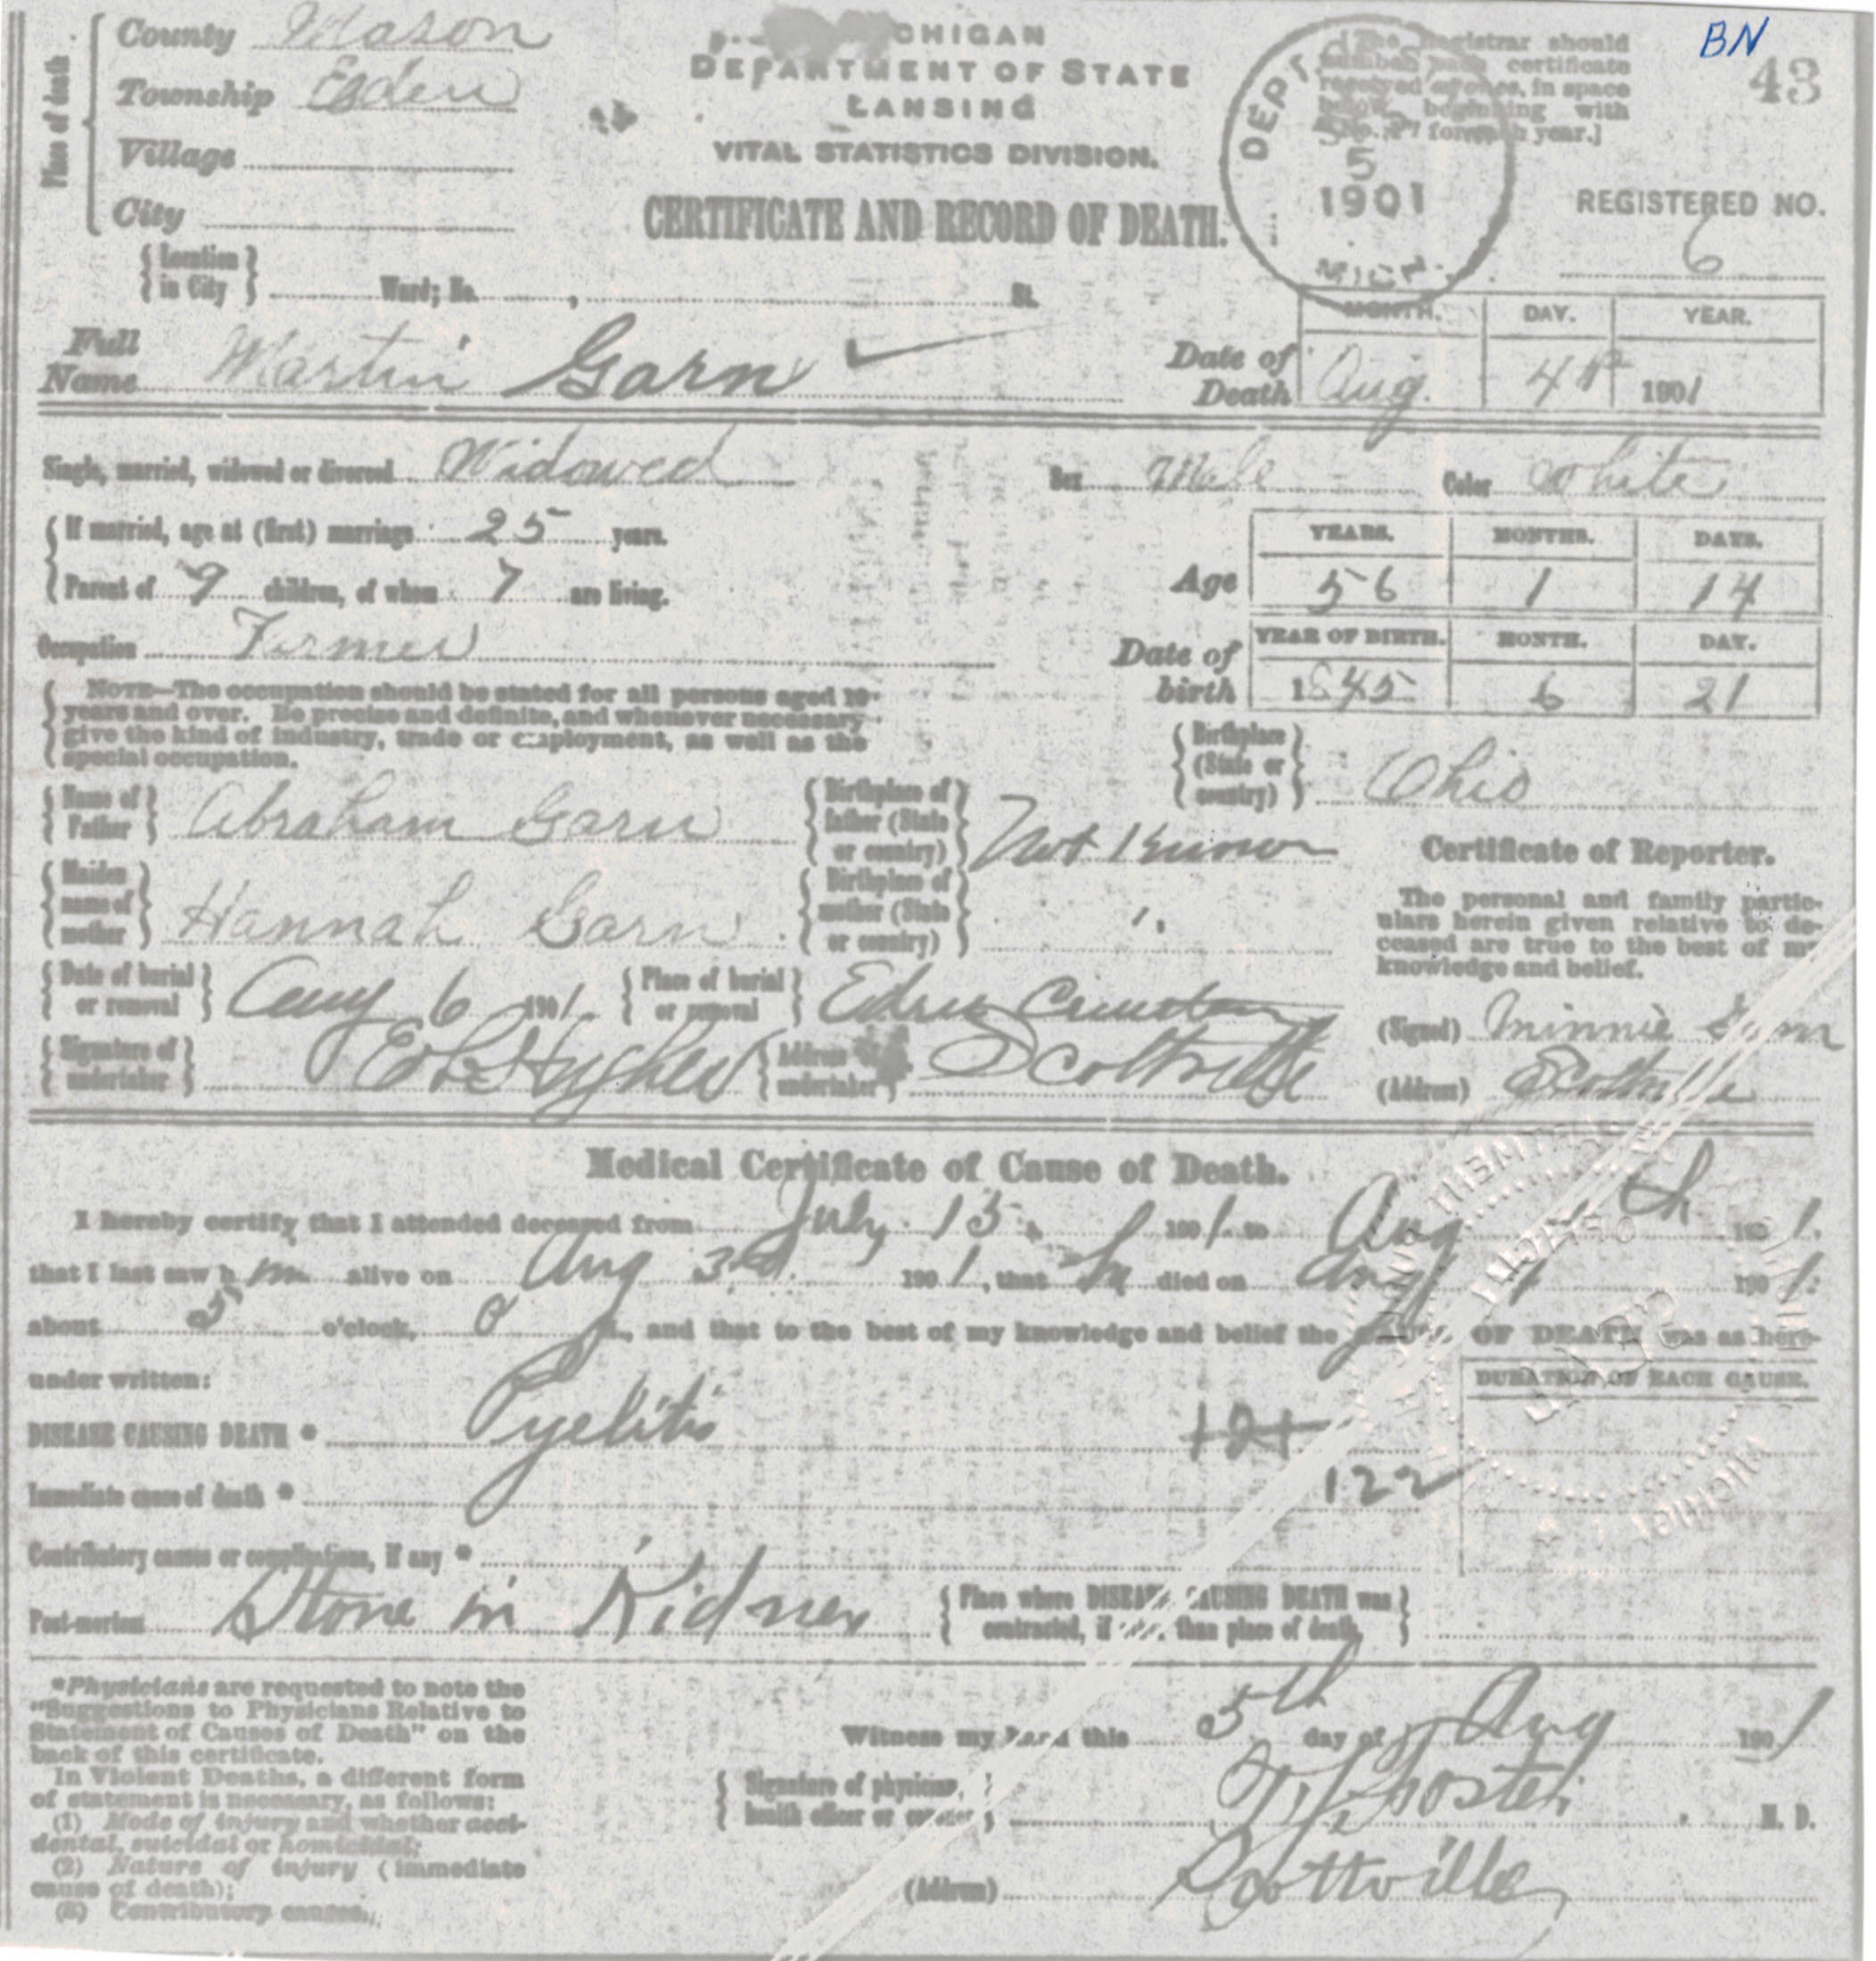 BN
43
County Mason
Township Eden
Village
City
Place of death
CHIGAN
DEPARTMENT OF STATE
LANSING
VITAL STATISTICS DIVISION.
CERTIFICATE AND RECORD OF DEATH.
registrar should
certificate
in space
beginning with
for each year.]
DEPT
5
1901
MICH.
REGISTERED NO.
6
Location in City Ward; No. , St.
Full Name Martin Garn
Date of Death
MONTH. DAY. YEAR.
Aug. 4th 1901
Single, married, widowed or divorced Widowed
Sex Male Color White
If married, age at (first) marriage 25 years.
Parent of 9 children, of whom 7 are living.
Age
YEARS. MONTHS. DAYS.
56 1 14
Occupation Farmer
Date of birth
YEAR OF BIRTH. MONTH. DAY.
1845 6 21
NOTE—The occupation should be stated for all persons aged 10
years and over. Be precise and definite, and whenever necessary
give the kind of industry, trade or employment, as well as the
special occupation.
Birthplace (State or country) Ohio
Name of Father Abraham Garn
Birthplace of father (State or country) Not Known
Maiden name of mother Hannah Garn
Birthplace of mother (State or country) "
Certificate of Reporter.
The personal and family partic-
ulars herein given relative to de-
ceased are true to the best of my
knowledge and belief.
(Signed) Minnie Garn
(Address) Scottville
Date of burial or removal Aug 6 1901
Place of burial or removal Eden
Signature of undertaker Hughes
Address of undertaker Scottville
Medical Certificate of Cause of Death.
I hereby certify that I attended deceased from July 13 1901 to Aug 4th 1901.
that I last saw h im alive on Aug 3rd. 1901, that he died on Aug 4 1901.
about 5 o'clock, , and that to the best of my knowledge and belief the OF DEATH was as here-
under written:
DURATION OF EACH CAUSE.
DISEASE CAUSING DEATH * Pyelitis
121
122
Immediate cause of death *
Contributory causes or complications, if any *
Post-mortem Stone in Kidney
Place where DISEASE CAUSING DEATH was
contracted, if than place of death,
*Physicians are requested to note the
"Suggestions to Physicians Relative to
Statement of Causes of Death" on the
back of this certificate.
In Violent Deaths, a different form
of statement is necessary, as follows:
(1) Mode of injury and whether acci-
dental, suicidal or homicidal;
(2) Nature of injury (immediate
cause of death);
(3) Contributory causes.
Witness my hand this 5th day of Aug 1901
Signature of physician, health officer or coroner Foster M. D.
(Address) Scottville